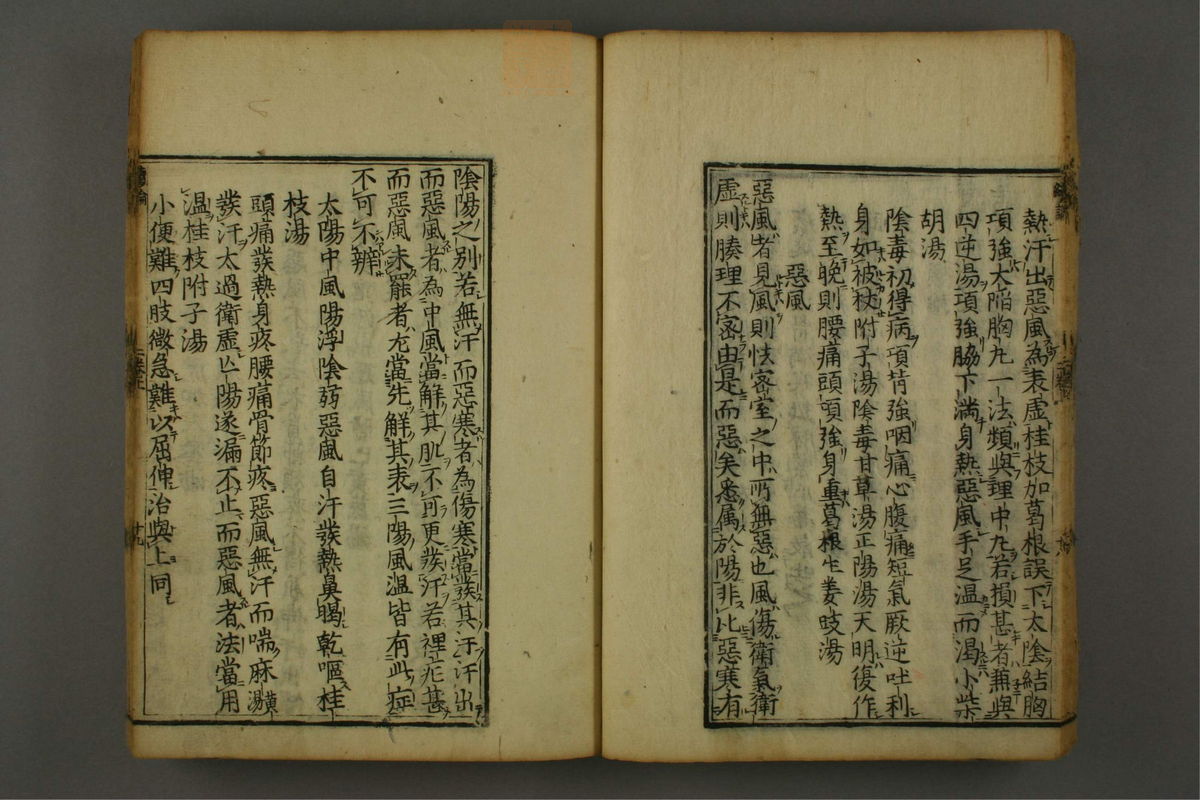 熱汗出惡風為表虛桂枝加葛根誤下太陰結胸
項強大陷胸丸一法頻與理中丸若損甚者兼與
四逆湯項強脇下満身熱惡風手足温而渴小柴
胡湯
陰毒初得病項背強咽痛心腹痛短氣厥逆吐利
身如被杖附子湯陰毒甘草湯正陽湯天明復作
熱至晚則腰痛頭項強身重葛根生姜豉湯
惡風
惡風者見風則怯密室之中所無惡也風傷衛氣衛
虛則腠理不密由是而惡矣悉属於陽非比惡寒有
陰陽之別若無汗而惡寒者為傷寒當發其汗汗出
而惡風者為中風當解其肌不可更發汗若裡症甚
而惡風未罷者尤當先解其表三陽風温皆有此症
不可不辨
太陽中風陽浮陰弱惡風自汗發熱鼻鳴乾嘔桂
枝湯
頭痛發熱身疼腰痛骨節疼惡風無汗而喘麻黄湯
發汗太過衛虛亡陽遂漏不止而惡風者法當用
温桂枝附子湯
小便難四肢微急難以屈伸治與上同
卄九